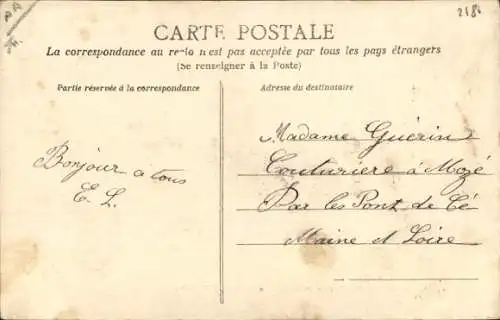 PA
2186
CARTE POSTALE
La correspondance au recto n est pas acceptée par tous les pays étrangers
(Se renseigner à la Poste)
Partie réservée à la correspondance
Adresse du destinataire
Madame Guérin
Couturière à Mozé
Par les Pont de Cé
Maine et Loire
Bonjour a tous
E. L.